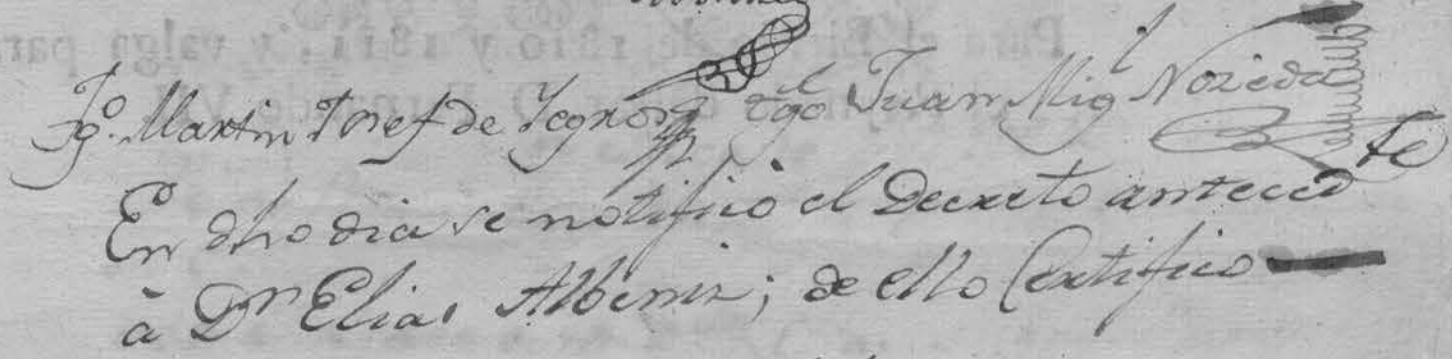 Tgo. Martin Josef de tgo Juan Mig.l Nozeda
En dho dia se notificò el Decreto anteced.te
à D.n Elias Albeniz; de ello Certifico